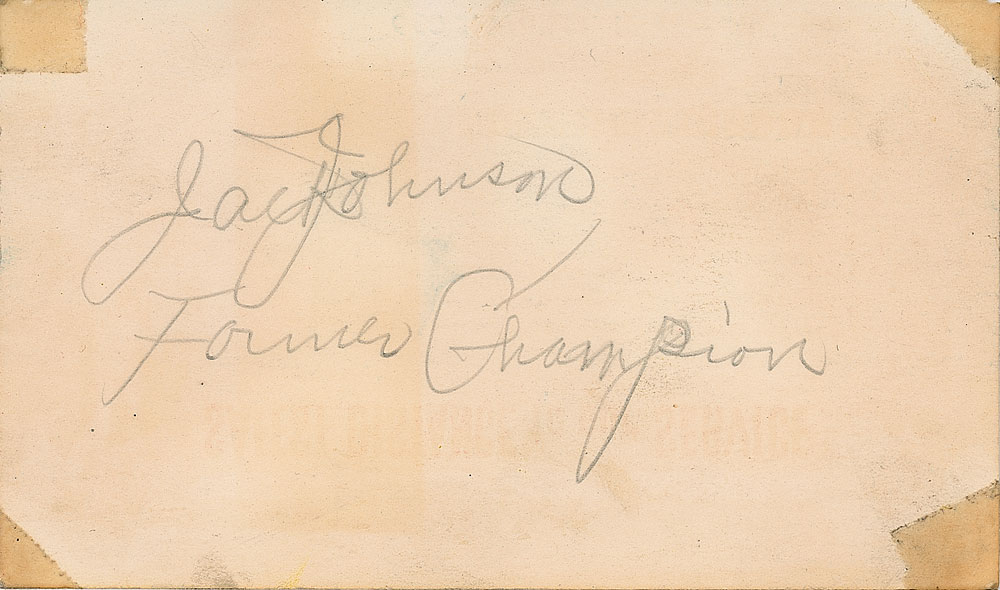 Jack Johnson
Former Champion